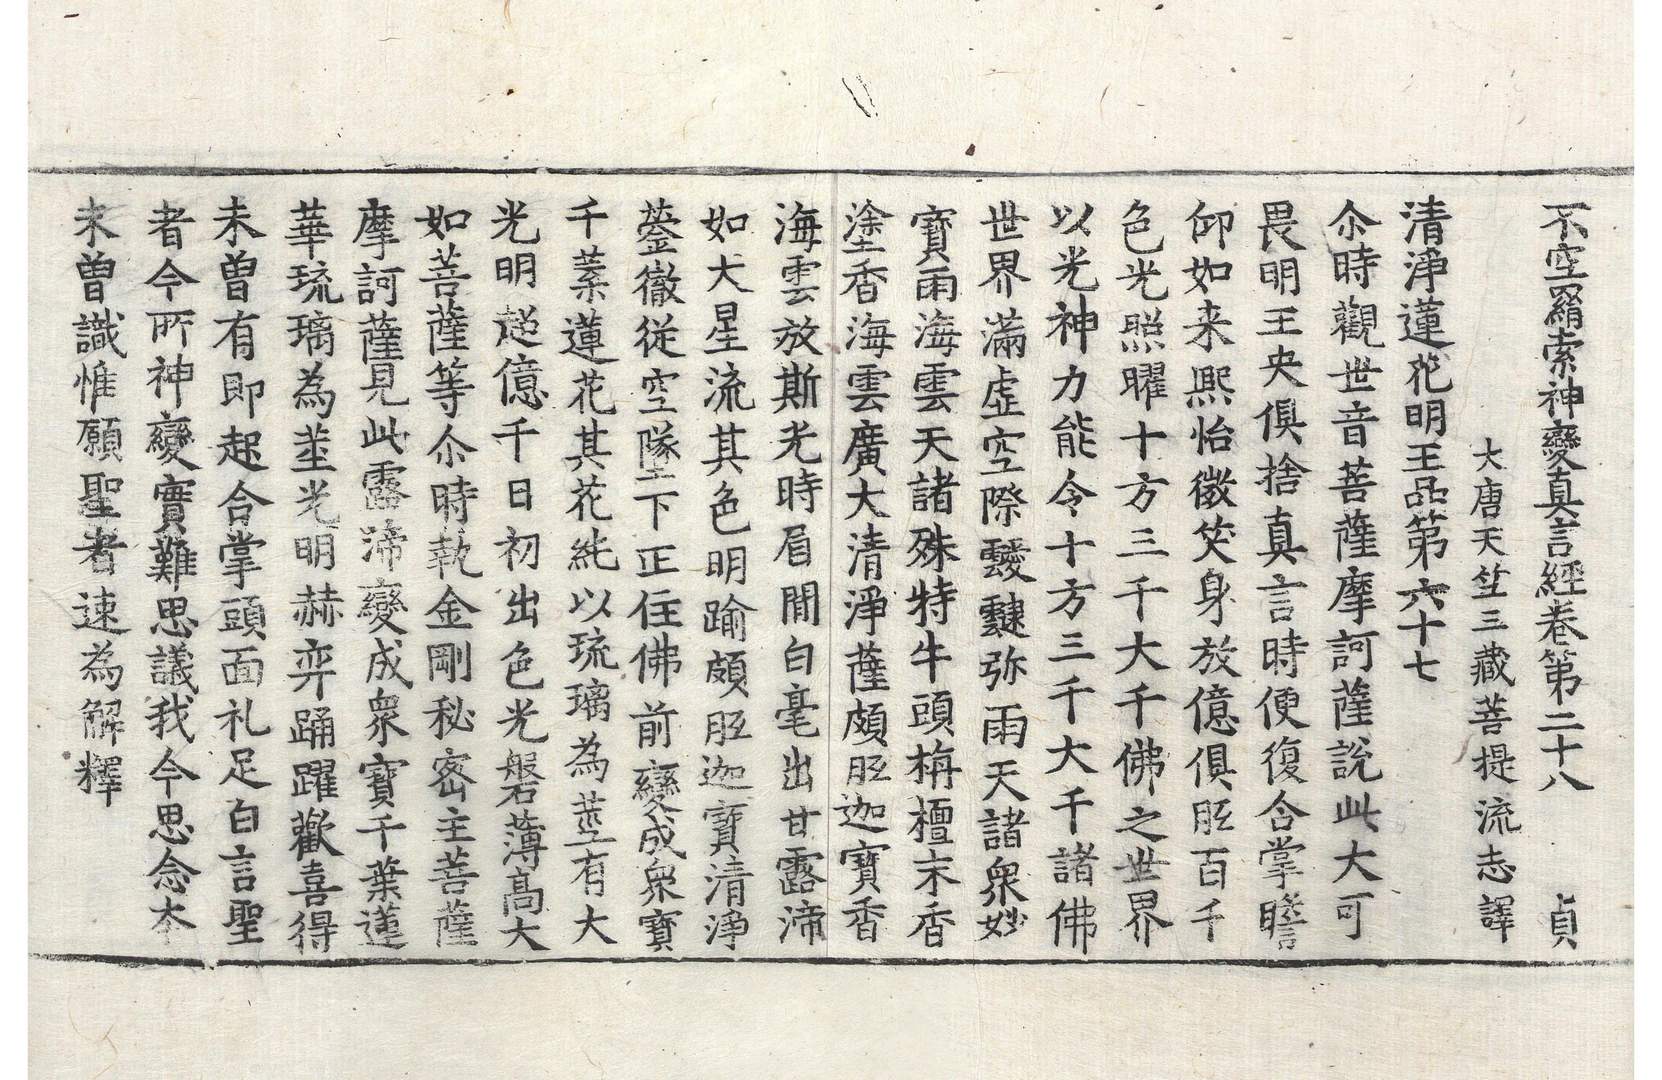 不空羂索神變真言經卷第二十八　貞
大唐天竺三藏菩提流志譯
清淨蓮花明王品第六十七
尒時觀世音菩薩摩訶薩說此大可
畏明王央俱捨真言時便復合掌瞻
仰如来熙怡微笑身放億俱胝百千
色光照曜十方三千大千佛之世界
以光神力能令十方三千大千諸佛
世界滿虛空際靉靆弥雨天諸衆妙
寶雨海雲天諸殊特牛頭栴檀末香
塗香海雲廣大清淨薩頗胝迦寶香
海雲放斯光時眉間白毫出甘露渧
如大星流其色明踰頗胝迦寶清淨
鎣徹從空墜下正住佛前變成衆寶
千葉蓮花其花純以琉璃為莖有大
光明超億千日初出色光磐薄高大
如菩薩等尒時執金剛秘密主菩薩
摩訶薩見此露渧變成衆寶千葉蓮
華琉璃為莖光明赫弈踊躍歡喜得
未曾有即起合掌頭面礼足白言聖
者今所神變實難思議我今思念本
未曾識惟願聖者速為解釋